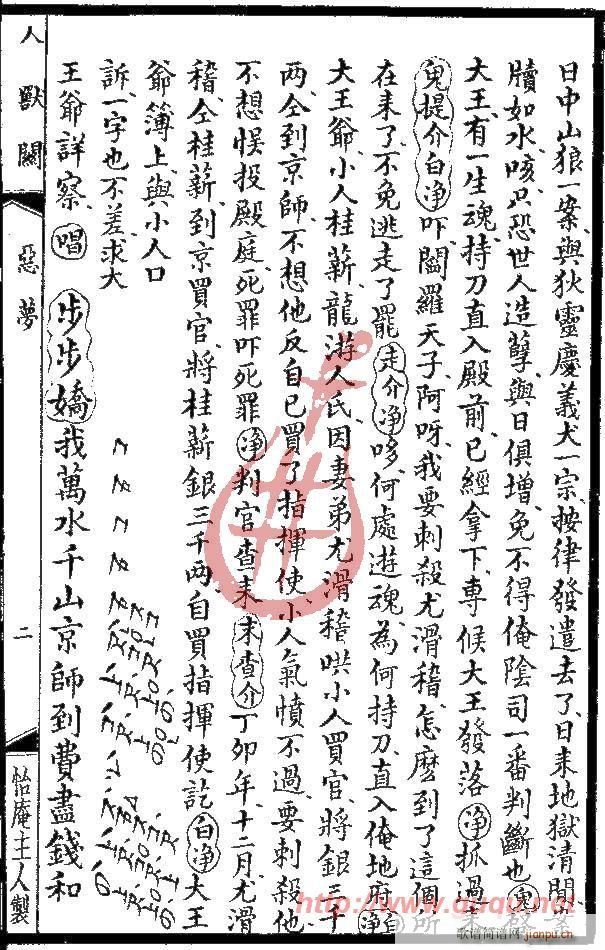 日中山狼一案、與狄靈慶義犬一宗、按律發遣去了、日來地獄清閒、
牘如水、咳、只恐世人造孽、與日俱增、免不得俺陰司一番判斷也、鬼
大王、有一生魂、持刀直入殿前、已經拿下、專候大王發落、淨抓過
鬼提介白淨吓、閻羅天子、阿呀、我要刺殺尤滑稽、怎麼到了這個
在來了、不免逃走了罷、走介淨哆、何處遊魂、為何持刀、直入俺地府、白淨
大王爺、小人桂薪、龍游人氏、因妻弟尤滑稽、哄小人買官、將銀三千
两、仝到京師、不想他反自已買了指揮使、小人氣憤不過、要刺殺他、
不想悞投殿庭、死罪吓死罪、淨判官查來、末查介丁卯年、十二月、尤滑
稽仝桂薪、到京買官、將桂薪銀三千两、自買指揮使訖、白淨大王
爺簿上、與小人口
訴、一字也不差、求大
王爺詳察、唱 步步嬌 我萬水千山京師到費盡錢和
人獸關
惡夢
二
怡庵主人製
http://www.guqu.net
歌谱简谱网
jianpu.cn